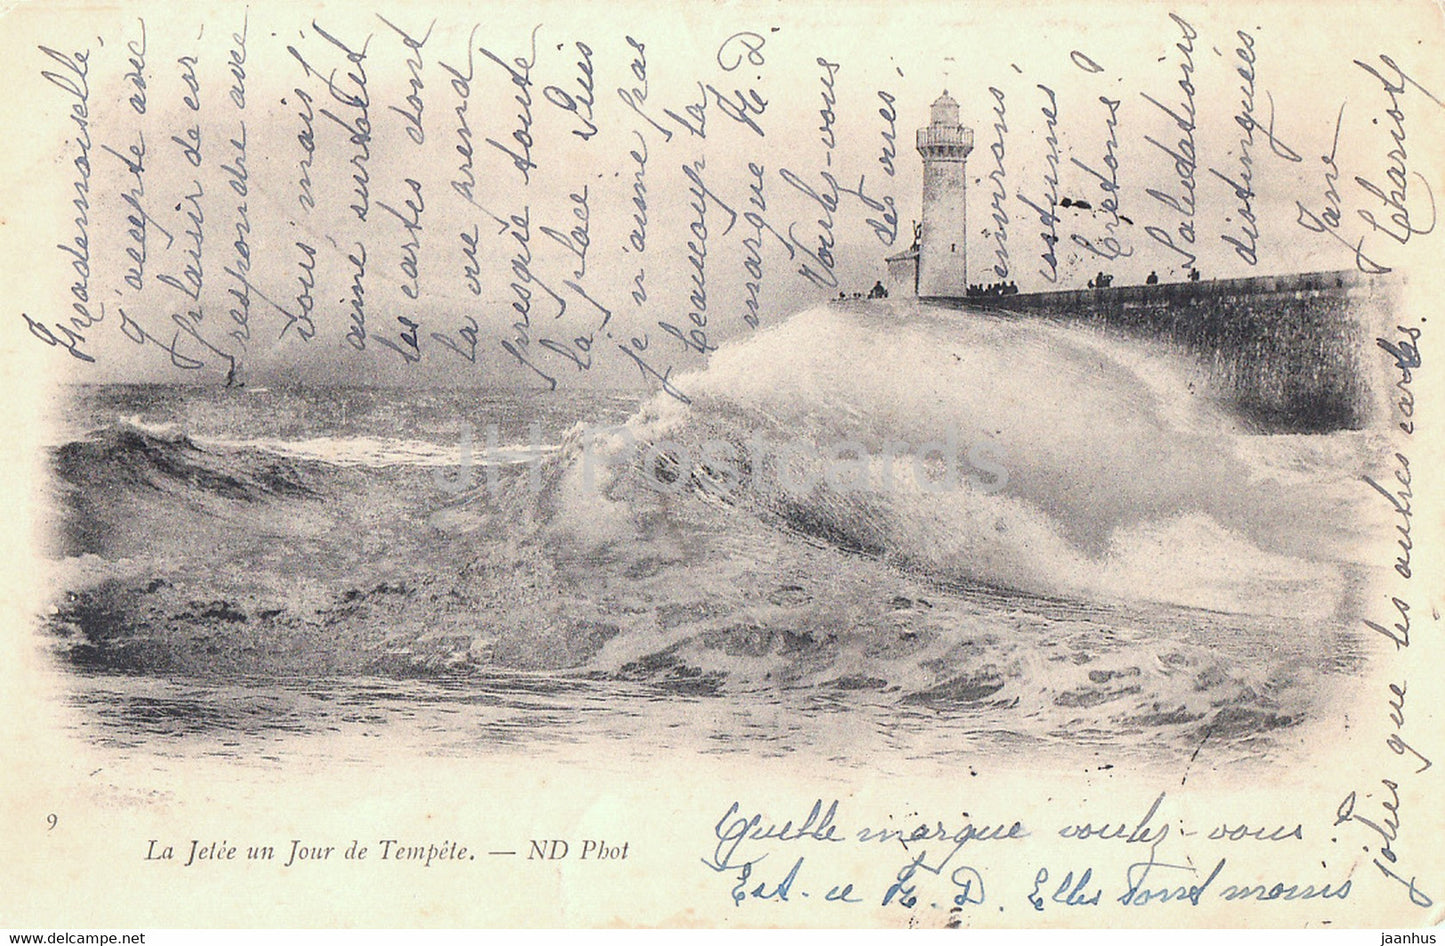 Mademoiselle,
J'accepte avec
plaisir de cor-
respondre avec
vous mais j'
aime surtout
les cartes dont
la vue prend
presque toute
la place Puis
je n'aime pas
beaucoup la
marque N. D.
Voulez-vous
des vues,
environs,
costumes
bretons?
Salutations
distinguées.
Jane
Chariot
Quelle marque voulez-vous?
Est-ce N. D. Elles sont moins
jolies que les autres cartes.
9
La Jetée un Jour de Tempête. — ND Phot
JH Postcards
jaanhus — jhpostcards.com